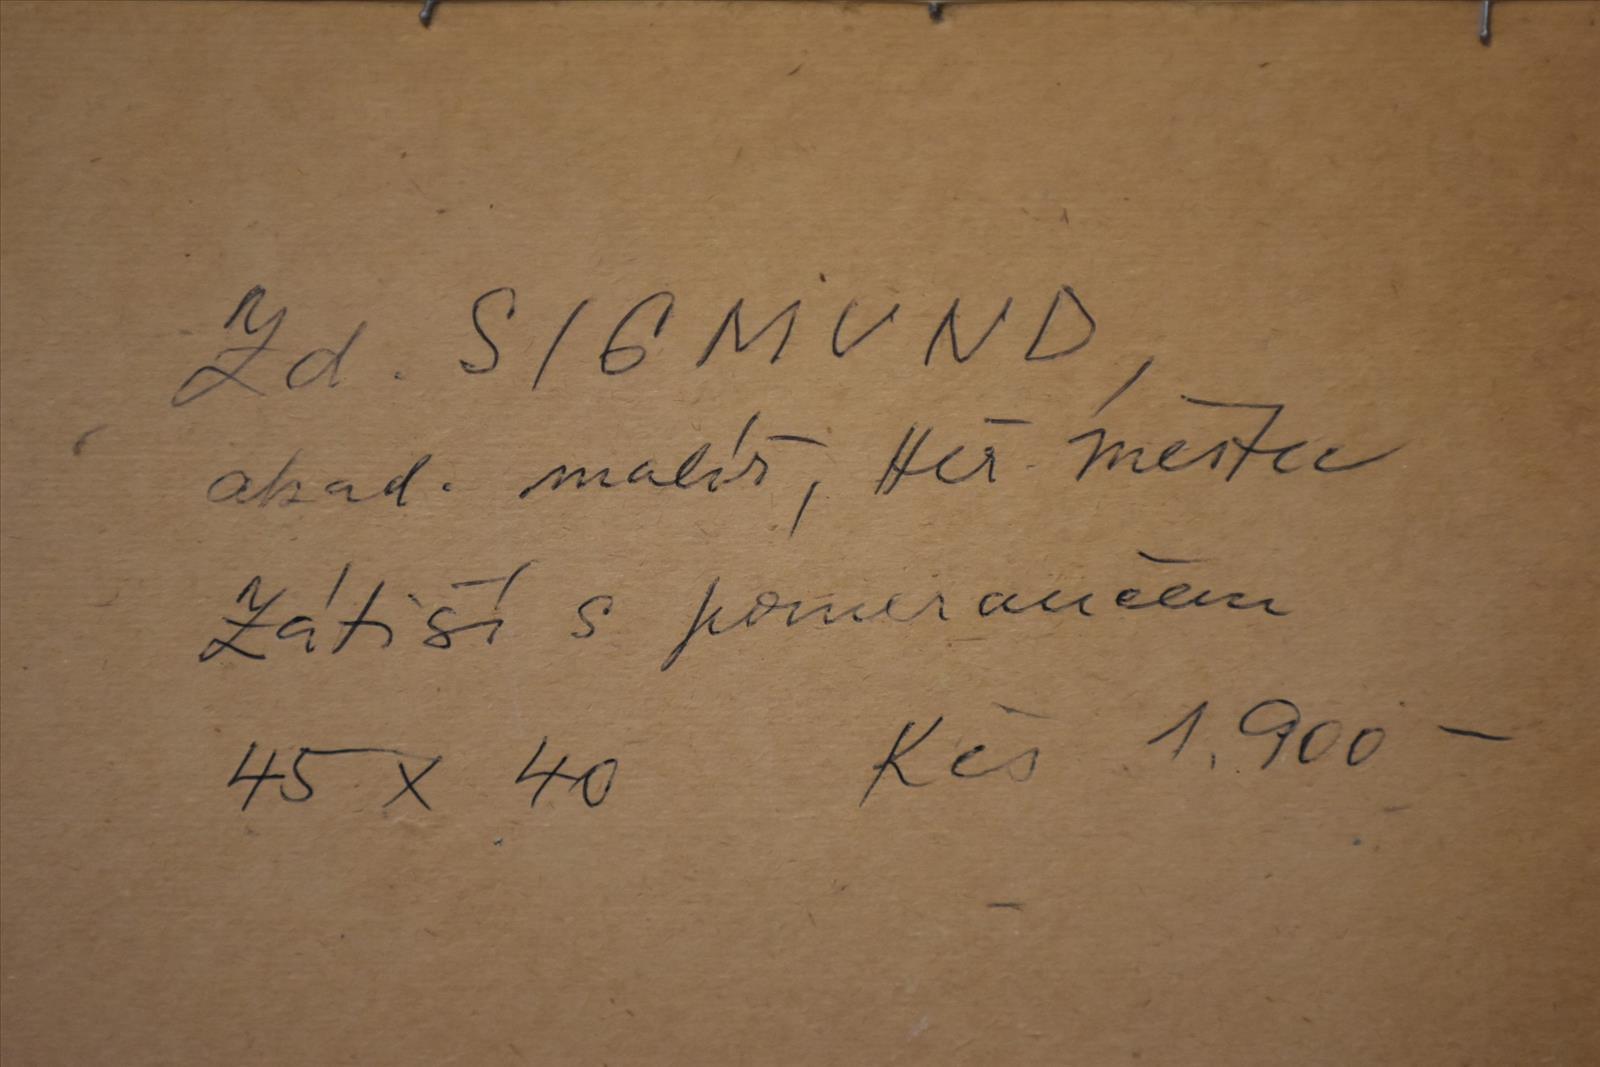 Zd. SIGMUND,
akad. malíř, Heř. Městec
Zátiší s pomerančem
45 x 40 Kčs 1.900 —